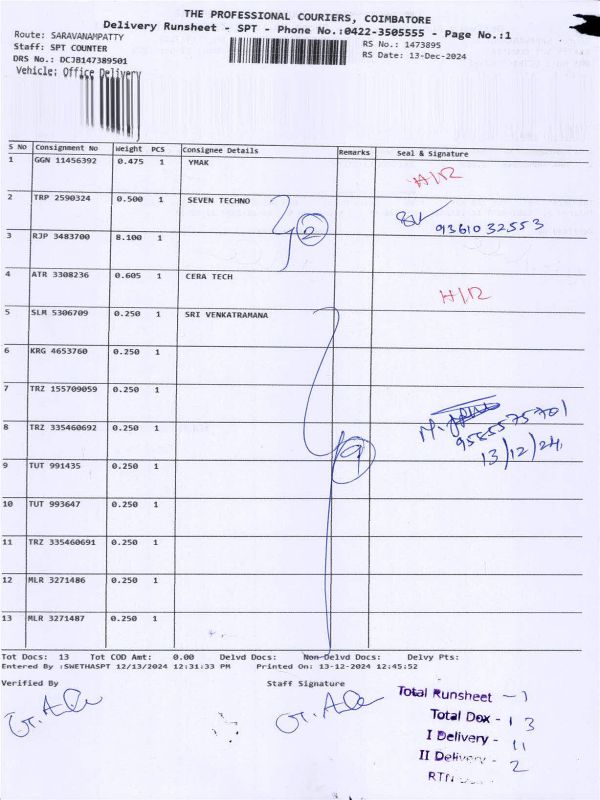 THE PROFESSIONAL COURIERS, COIMBATORE
Delivery Runsheet - SPT - Phone No.:0422-3505555 - Page No.:1
Route: SARAVANAMPATTY
RS No.: 1473895
Staff: SPT COUNTER
RS Date: 13-Dec-2024
DRS No.: DCJB147389501
Vehicle: Office Delivery
S No Consignment No Weight PCS Consignee Details Remarks Seal & Signature
1 GGN 11456392 0.475 1 YMAK
H/R
2 TRP 2590324 0.500 1 SEVEN TECHNO
2 9361032553
3 RJP 3483700 8.100 1
4 ATR 3308236 0.605 1 CERA TECH
H/R
5 SLM 5306709 0.250 1 SRI VENKATRAMANA
6 KRG 4653760 0.250 1
7 TRZ 155709059 0.250 1
8 TRZ 335460692 0.250 1
9585575701
9
13/12/24
9 TUT 991435 0.250 1
10 TUT 993647 0.250 1
11 TRZ 335460691 0.250 1
12 MLR 3271486 0.250 1
13 MLR 3271487 0.250 1
Tot Docs: 13 Tot COD Amt: 0.00 Delvd Docs: Non-Delvd Docs: Delvy Pts:
Entered By :SWETHASPT 12/13/2024 12:31:33 PM Printed On: 13-12-2024 12:45:52
Verified By Staff Signature
Total Runsheet - 1
Total Dox - 13
I Delivery - 11
II Delivery - 2
RTN